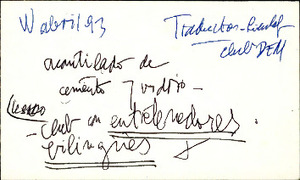 W abril 93
Traductores-
club DEM
acantilado de
cemento y vidrio -
- club con entrenadores
bilingües